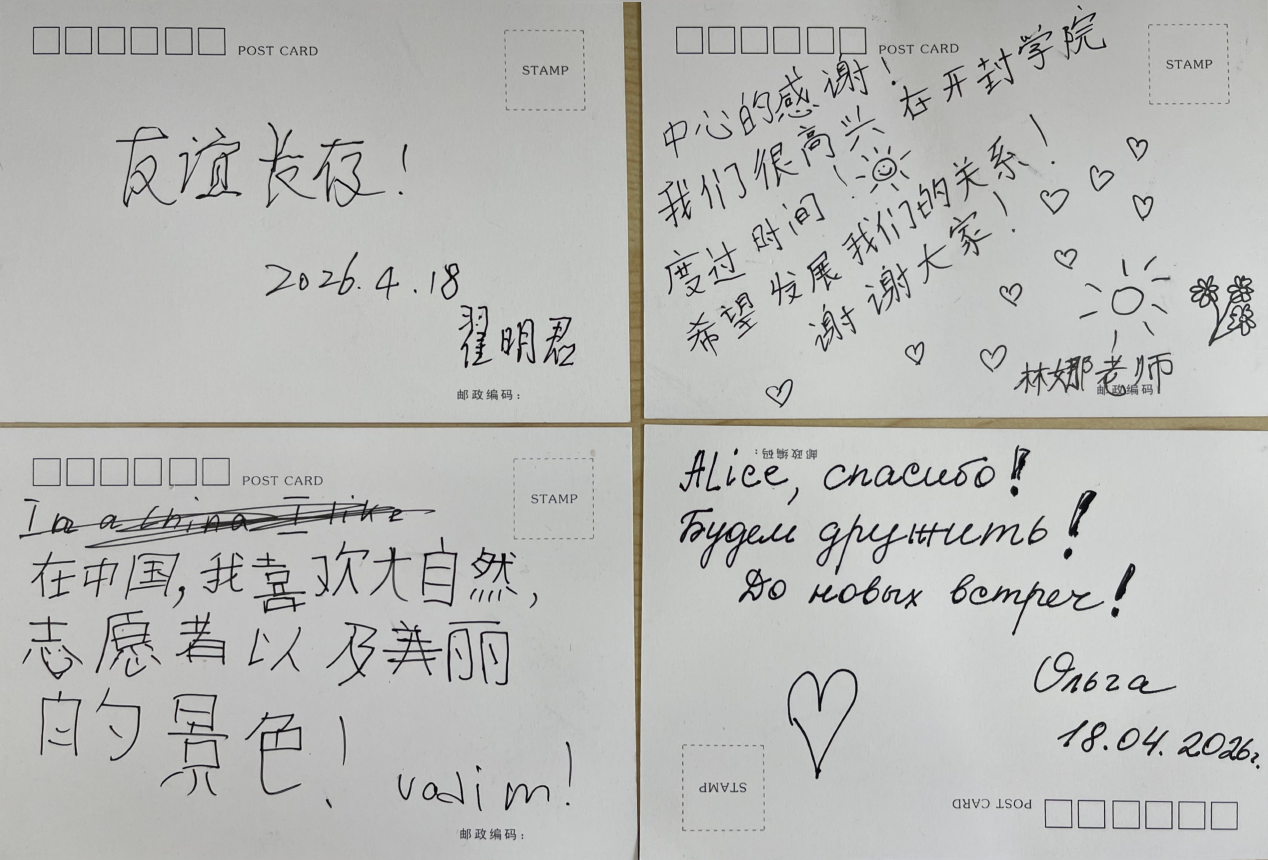 POST CARD
STAMP
友谊长存！
2026.4.18
翟明君
邮政编码：
POST CARD
STAMP
中心的感谢！
我们很高兴 在开封学院
度过时间！
希望发展我们的关系！
谢谢大家！
林娜老师
邮政编码：
POST CARD
STAMP
In a China I like
在中国，我喜欢大自然，
志愿者以及美丽
的景色！
vadim!
邮政编码：
邮政编码：
Alice, спасибо!
Будем дружить!
До новых встреч!
Ольга
18.04.2026г.
STAMP
POST CARD